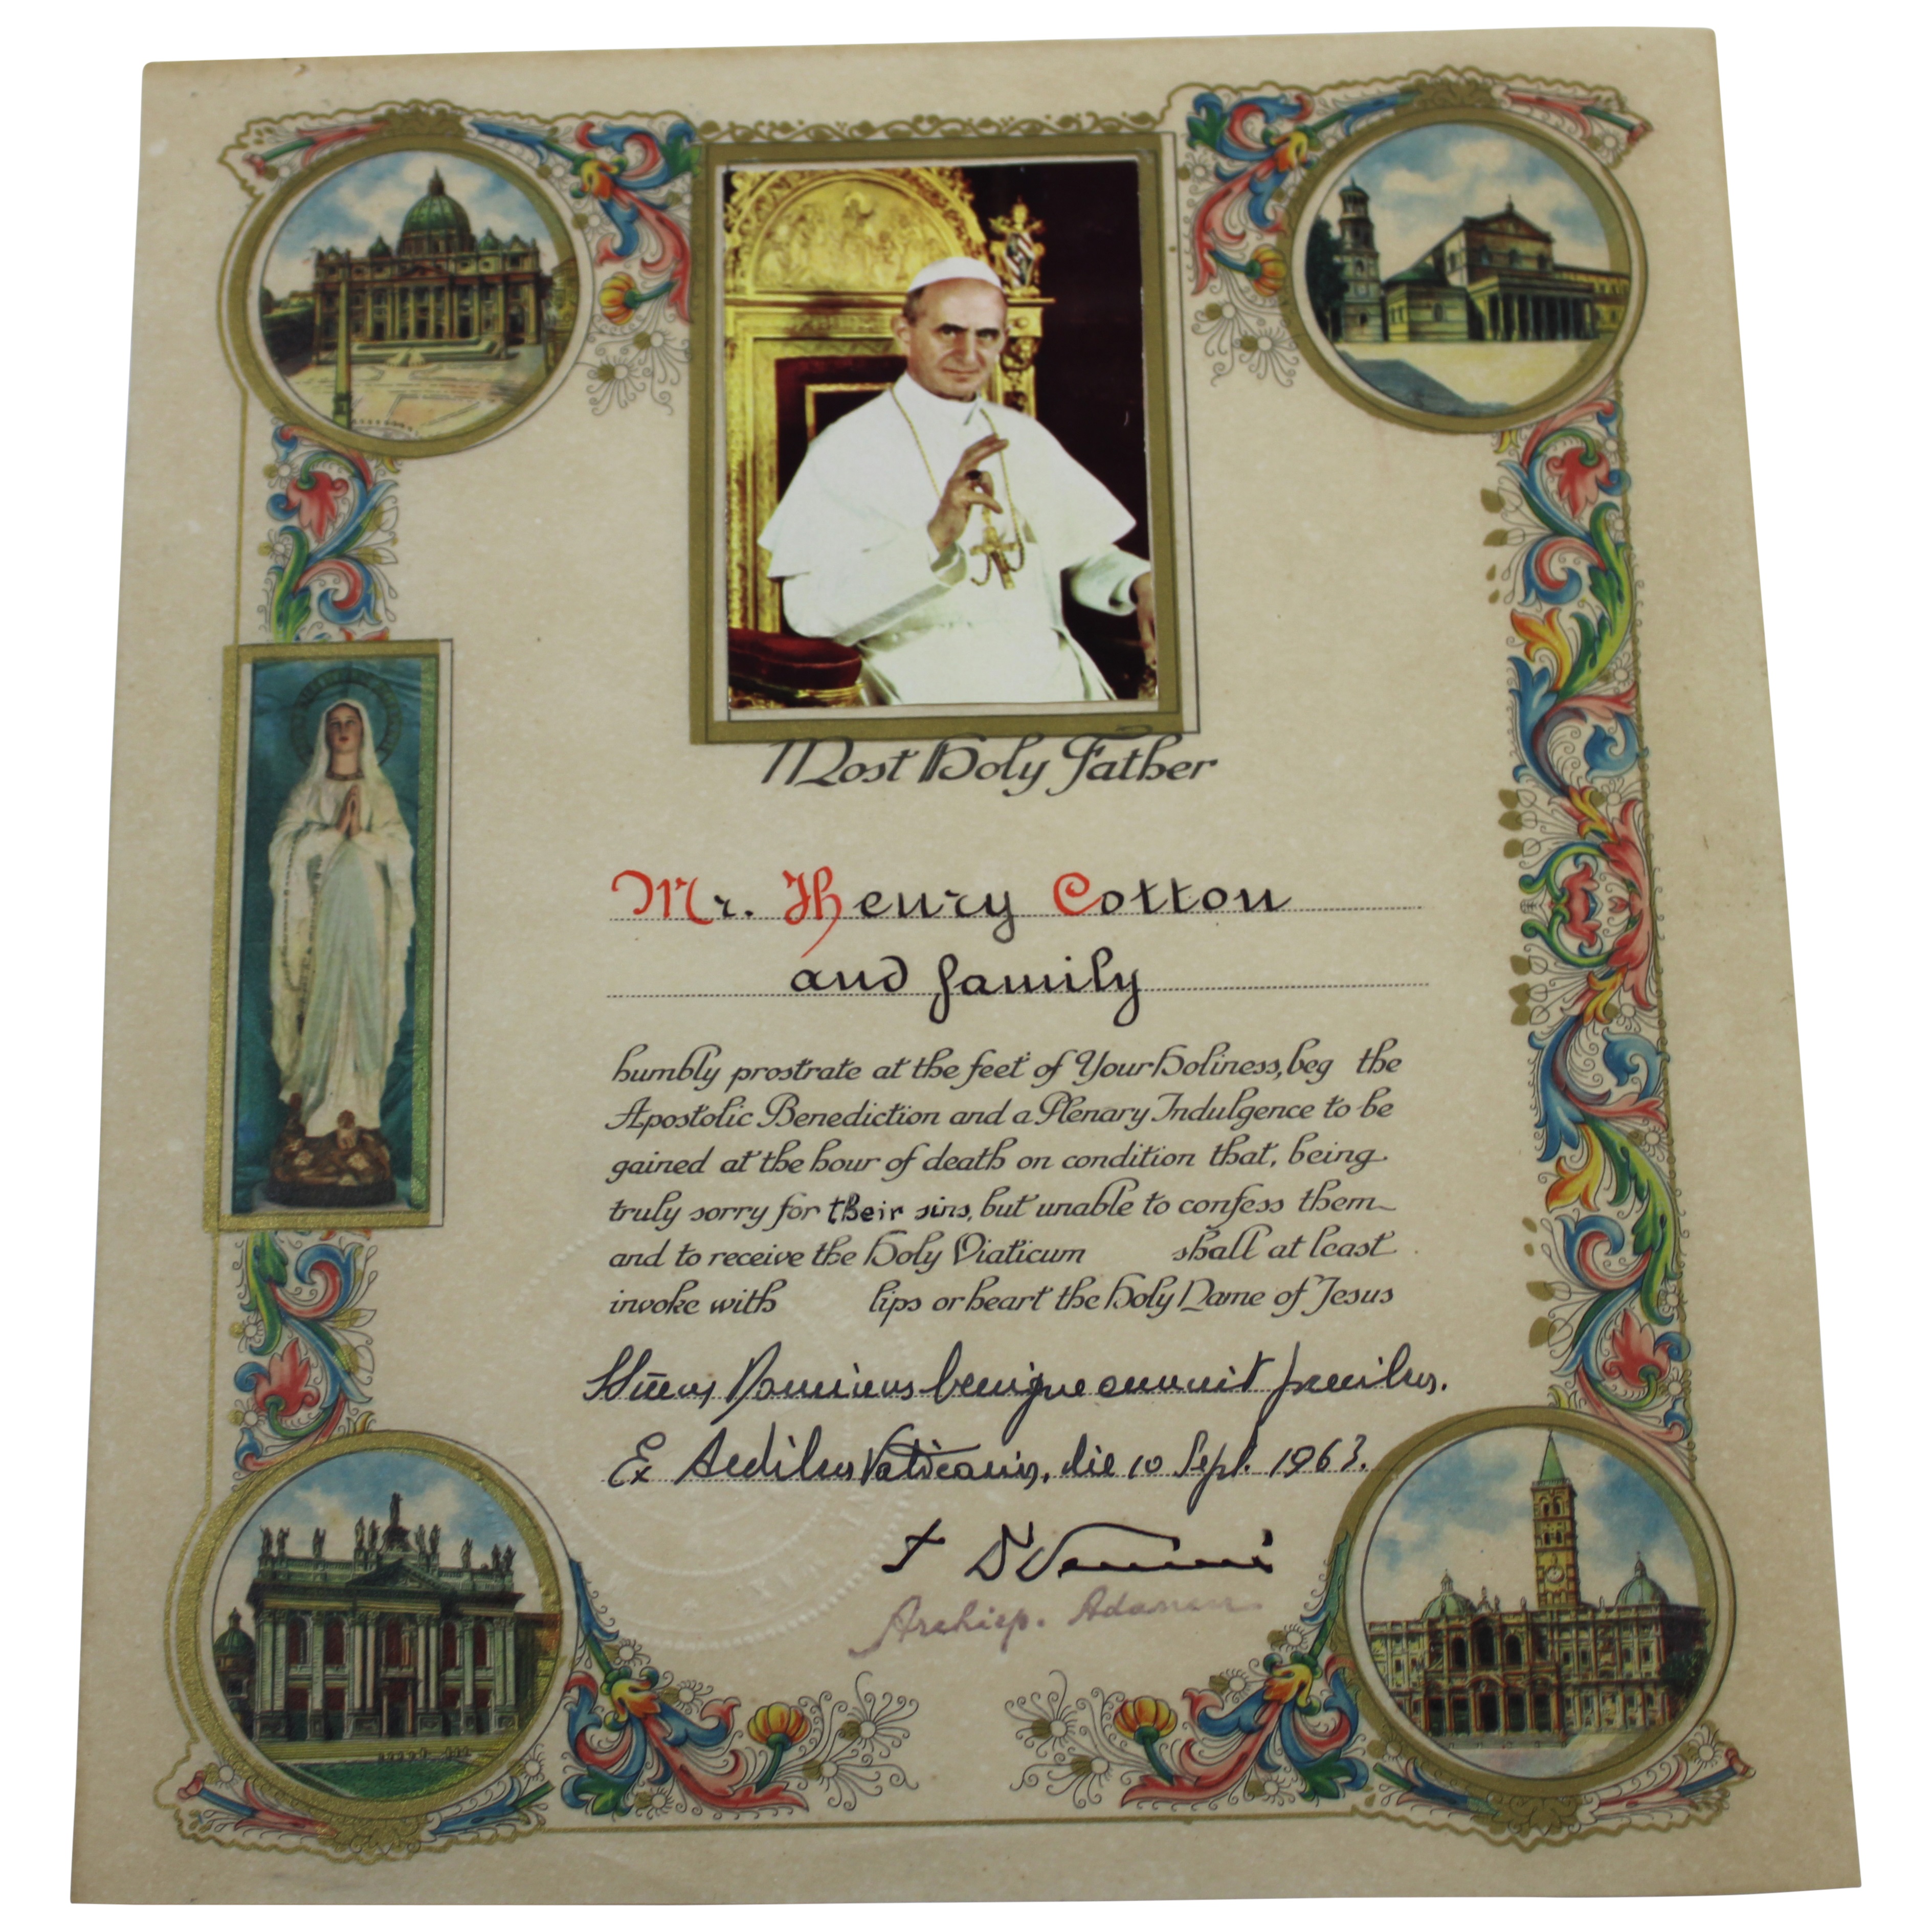 Most Holy Father
Mr. Henry Cotton
and family
humbly prostrate at the feet of Your Holiness, beg the
Apostolic Benediction and a Plenary Indulgence to be
gained at the hour of death on condition that, being
truly sorry for their sins, but unable to confess them
and to receive the Holy Viaticum shall at least
invoke with lips or heart the Holy Name of Jesus
Dominus benigne annuit precibus.
Ex Aedibus Vaticanis, die 10 Sept. 1963.
Archiep.